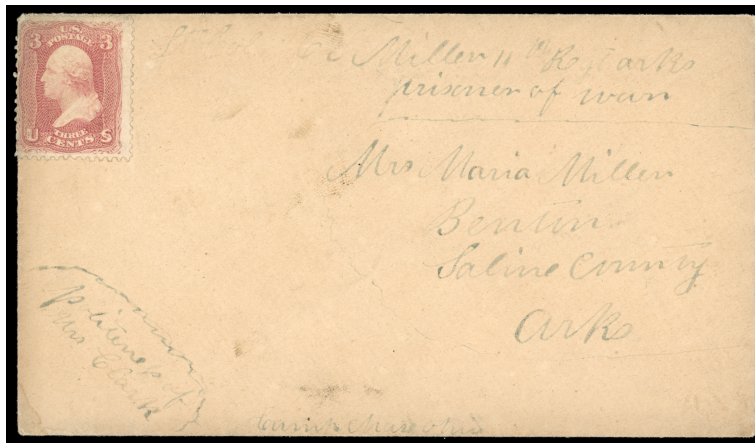 U.S.
POSTAGE
3 3
THREE
CENTS
U S
Miller 11th Rg Arks
prisoner of war
Mrs Maria Miller
Benton
Saline County
Arks
politeness of
Mrs Clark
Camp Chase Ohio